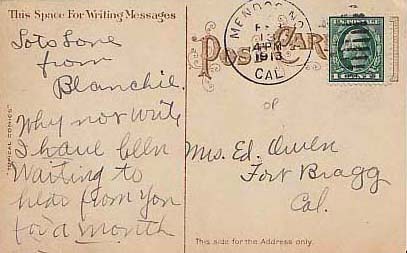 This Space For Writing Messages
Lots Love
from
Blanchie.
Why not write
I have been
waiting to
hear from you
for a month
"TROPICAL COMICS"
POST CARD
MENDOCINO
13
4 PM
1913
CAL
1 CENT 1
Mrs. Ed. Owen
Fort Bragg
Cal.
This side for the Address only.